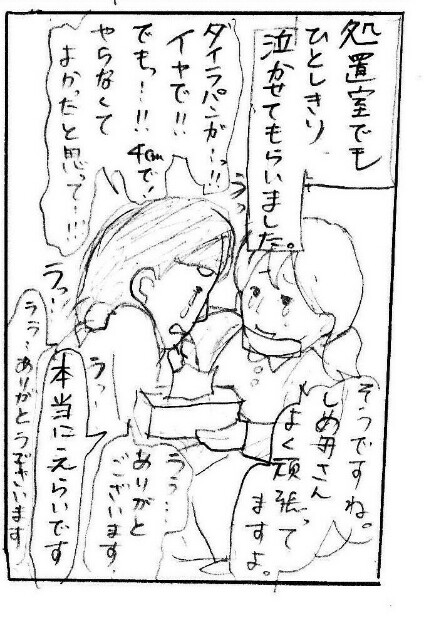 処置室でも
ひとしきり
泣かせてもらいました。
ダイラパンがーっ!!
イヤで!!
でもっ…!!
4cmで!
やらなくて
よかったと思って…!!
うっ
そうですね。
しめ母さん
よく頑張って
ますよ。
うう…
ありがと
ございます
うっ…
本当にえらいです
うっ…
うう…ありがとうございます